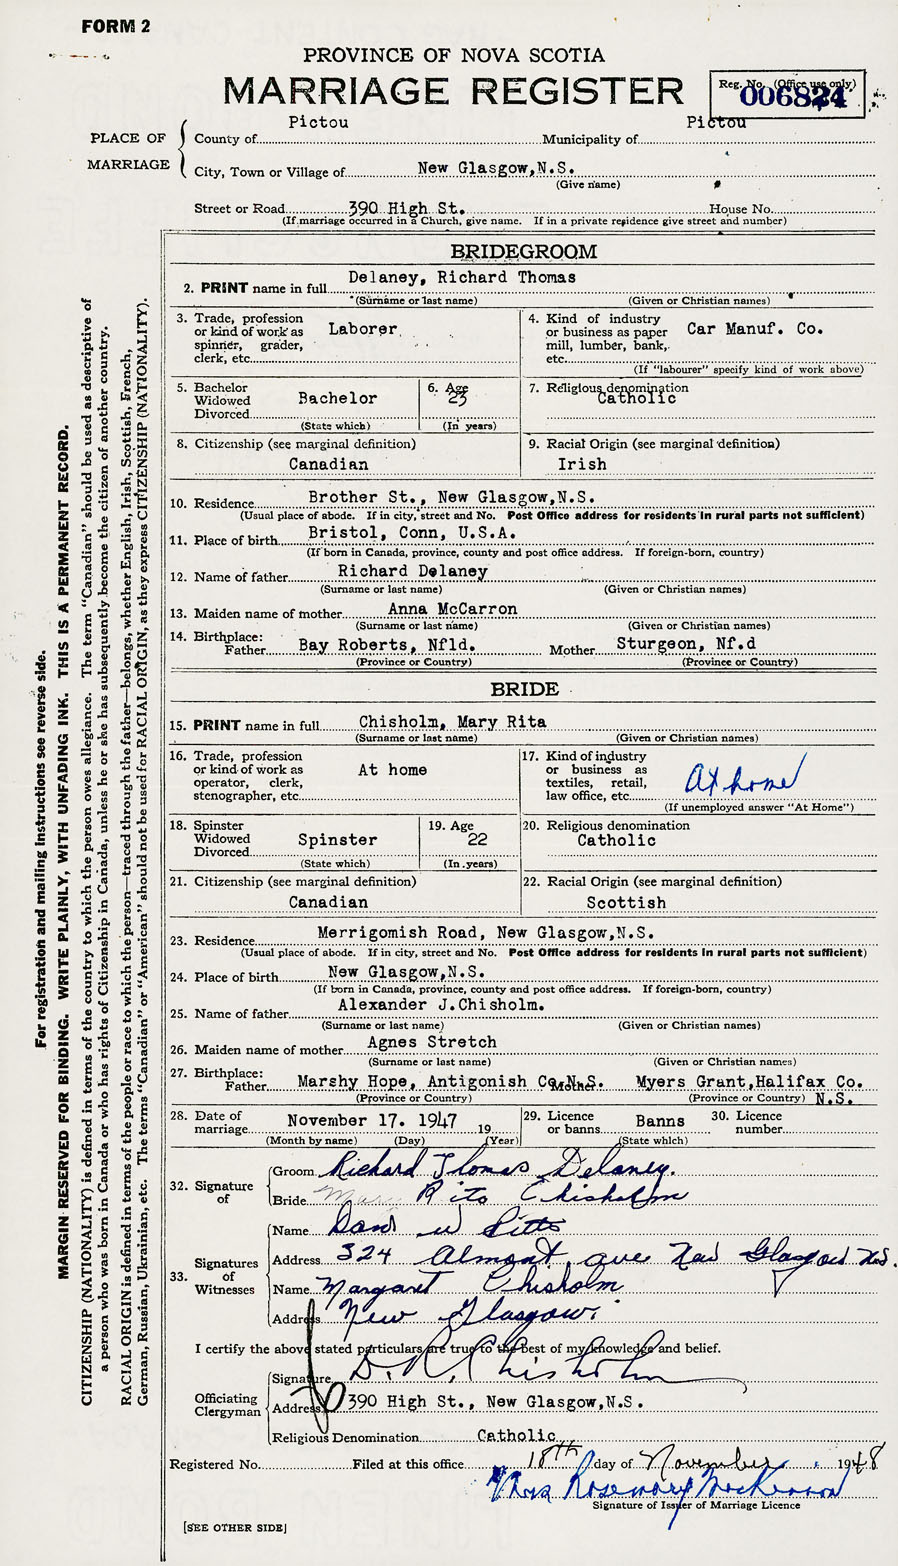 FORM 2
PROVINCE OF NOVA SCOTIA
MARRIAGE REGISTER
Reg. No. (Office use only)
006824
PLACE OF MARRIAGE
County of Pictou Municipality of Pictou
City, Town or Village of New Glasgow,N.S.
(Give name)
Street or Road 390 High St. House No.
(If marriage occurred in a Church, give name. If in a private residence give street and number)
BRIDEGROOM
2. PRINT name in full Delaney, Richard Thomas
(Surname or last name) (Given or Christian names)
3. Trade, profession or kind of work as spinner, grader, clerk, etc. Laborer
4. Kind of industry or business as paper mill, lumber, bank, etc. Car Manuf. Co.
(If "labourer" specify kind of work above)
5. Bachelor Widowed Divorced Bachelor
(State which)
6. Age 23
(In years)
7. Religious denomination
Catholic
8. Citizenship (see marginal definition)
Canadian
9. Racial Origin (see marginal definition)
Irish
10. Residence Brother St., New Glasgow,N.S.
(Usual place of abode. If in city, street and No. Post Office address for residents in rural parts not sufficient)
11. Place of birth Bristol, Conn, U.S.A.
(If born in Canada, province, county and post office address. If foreign-born, country)
12. Name of father Richard Delaney
(Surname or last name) (Given or Christian names)
13. Maiden name of mother Anna McCarron
(Surname or last name) (Given or Christian names)
14. Birthplace:
Father Bay Roberts, Nfld. Mother Sturgeon, Nf.d
(Province or Country) (Province or Country)
BRIDE
15. PRINT name in full Chisholm, Mary Rita
(Surname or last name) (Given or Christian names)
16. Trade, profession or kind of work as operator, clerk, stenographer, etc. At home
17. Kind of industry or business as textiles, retail, law office, etc. At home
(If unemployed answer "At Home")
18. Spinster Widowed Divorced Spinster
(State which)
19. Age 22
(In years)
20. Religious denomination
Catholic
21. Citizenship (see marginal definition)
Canadian
22. Racial Origin (see marginal definition)
Scottish
23. Residence Merrigomish Road, New Glasgow,N.S.
(Usual place of abode. If in city, street and No. Post Office address for residents in rural parts not sufficient)
24. Place of birth New Glasgow,N.S.
(If born in Canada, province, county and post office address. If foreign-born, country)
25. Name of father Alexander J.Chisholm.
(Surname or last name) (Given or Christian names)
26. Maiden name of mother Agnes Stretch
(Surname or last name) (Given or Christian names)
27. Birthplace:
Father Marshy Hope, Antigonish Co.N.S. Mother Myers Grant,Halifax Co.
(Province or Country) (Province or Country) N.S.
28. Date of marriage November 17. 1947 19
(Month by name) (Day) (Year)
29. Licence or banns Banns
(State which)
30. Licence number
32. Signature of
Groom Richard Thomas Delaney.
Bride Mary Rita Chisholm
33. Signatures of Witnesses
Name W Pitts
Address 324 Almont ave New Glasgow N.S.
Name Margaret Chisholm
Address New Glasgow.
I certify the above stated particulars are true to the best of my knowledge and belief.
Officiating Clergyman
Signature D. R. Chisholm
Address 390 High St., New Glasgow,N.S.
Religious Denomination Catholic
Registered No. Filed at this office 18th day of November 1948
Mrs Rosemary MacKinnon
Signature of Issuer of Marriage Licence
[SEE OTHER SIDE]
For registration and mailing instructions see reverse side.
MARGIN RESERVED FOR BINDING. WRITE PLAINLY, WITH UNFADING INK. THIS IS A PERMANENT RECORD.
CITIZENSHIP (NATIONALITY) is defined in terms of the country to which the person owes allegiance. The term "Canadian" should be used as descriptive of
a person who was born in Canada or who has rights of Citizenship in Canada, unless he or she has subsequently become the citizen of another country.
RACIAL ORIGIN is defined in terms of the people or race to which the person—traced through the father—belongs, whether English, Irish, Scottish, French,
German, Russian, Ukrainian, etc. The terms "Canadian" or "American" should not be used for RACIAL ORIGIN, as they express CITIZENSHIP (NATIONALITY).